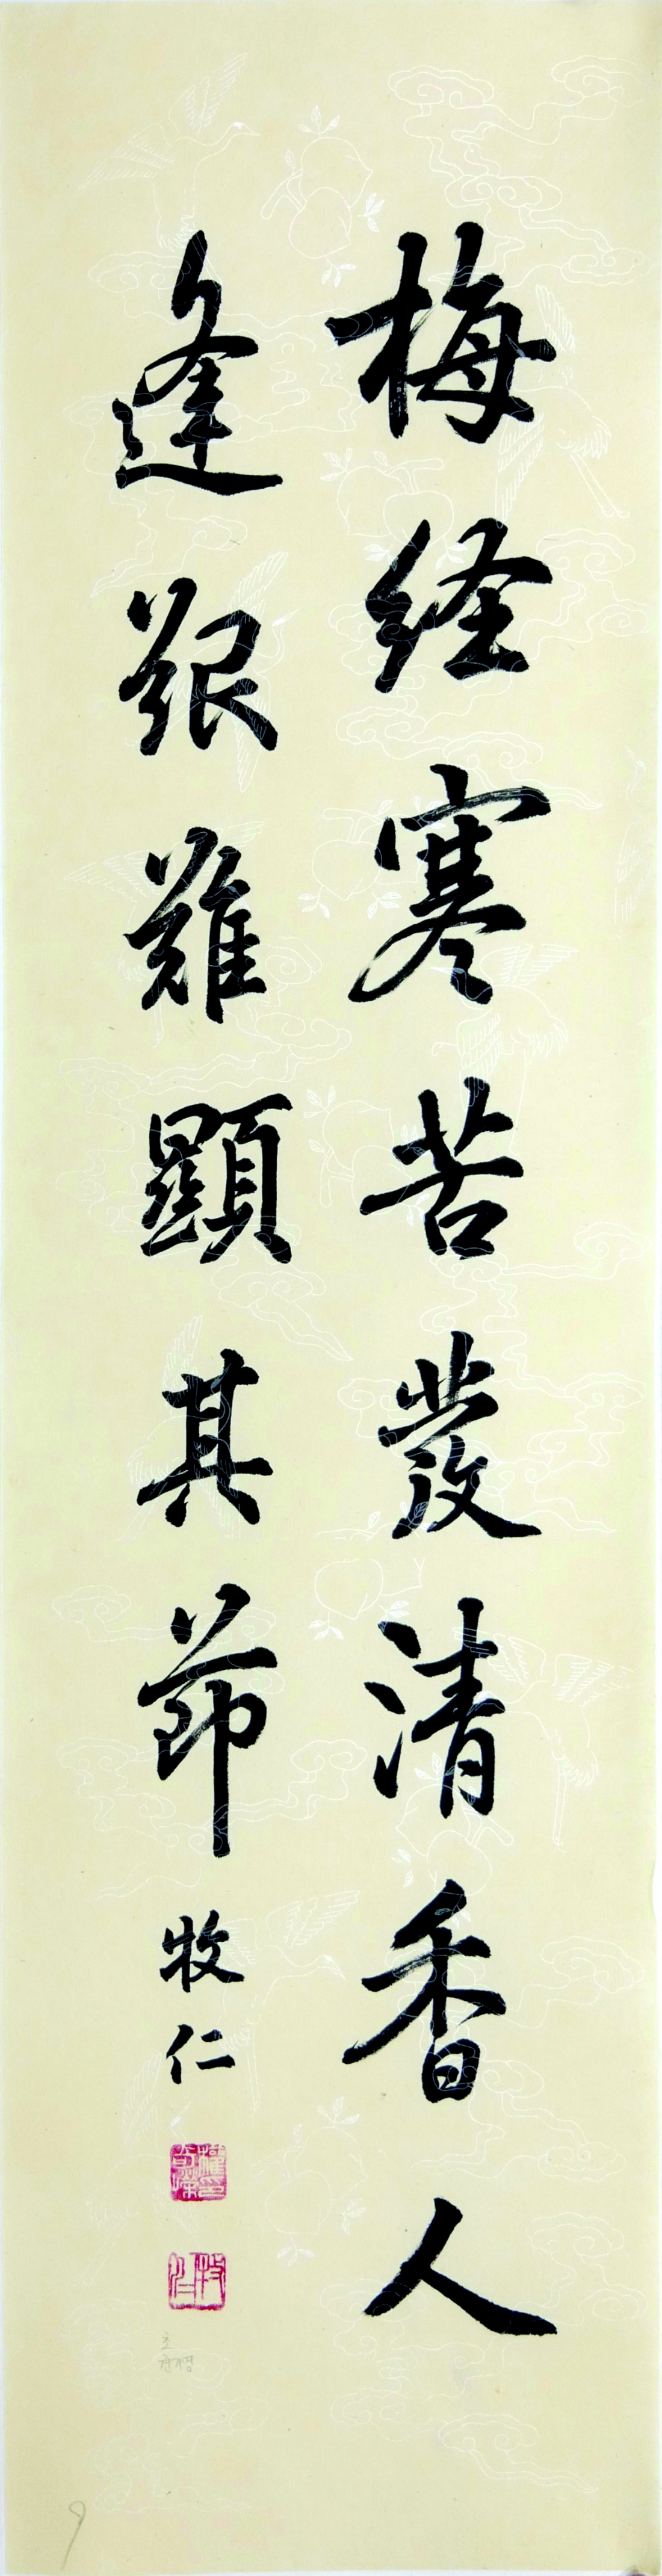 梅経寒苦發清香人
逢艱難顯其節 牧仁
牧仁